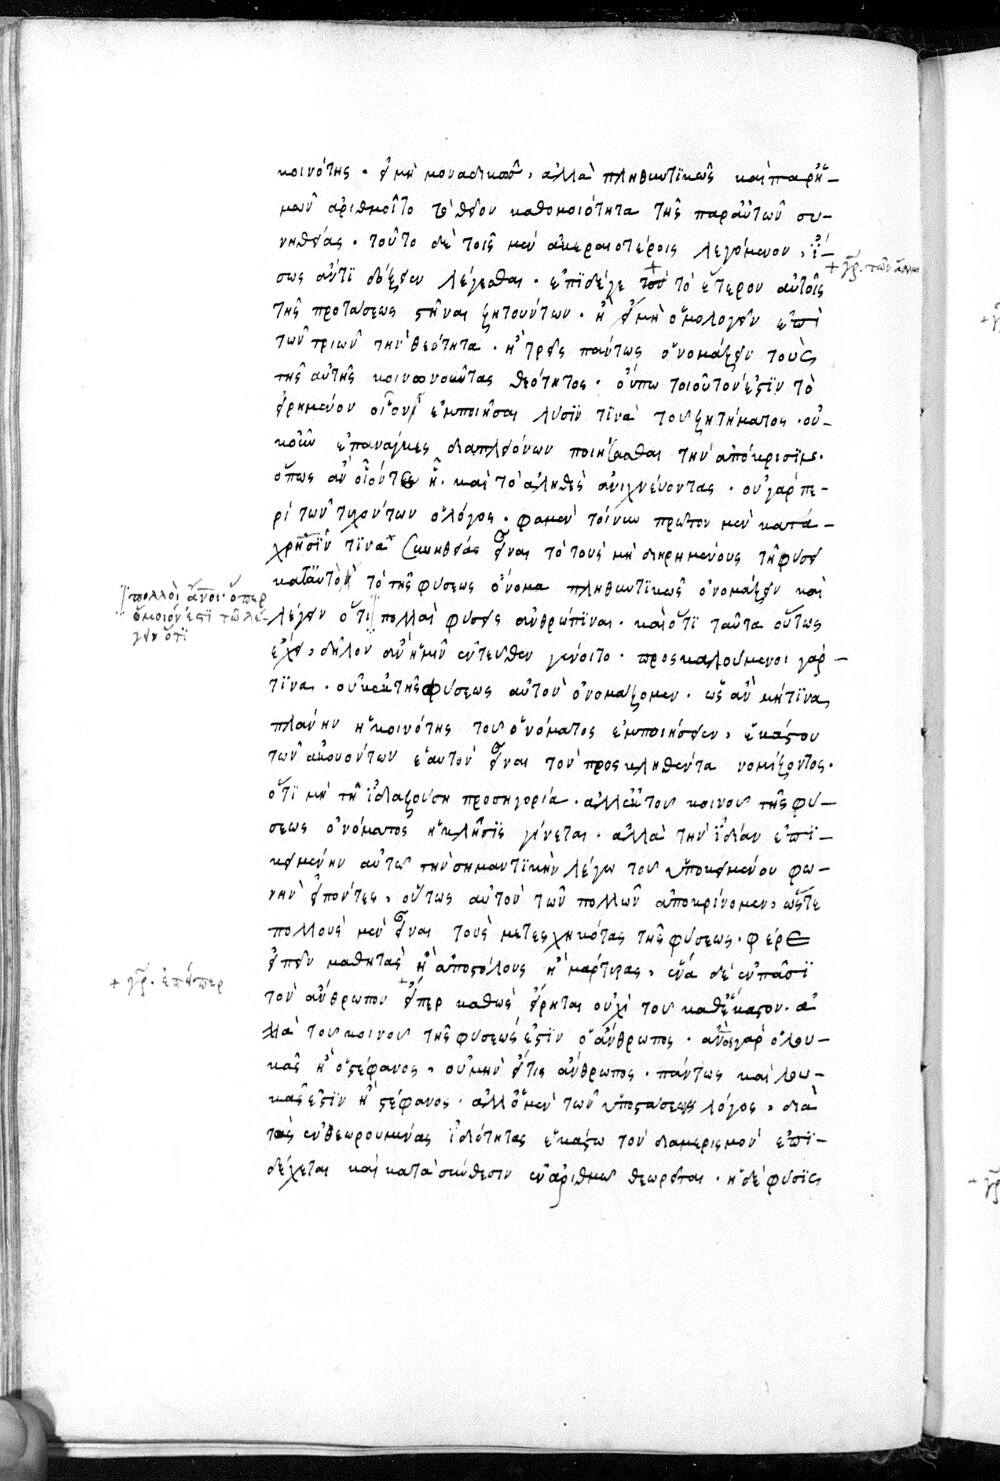 κοινότης. εἰ μὴ μοναδικῶς, ἀλλὰ πληθυντικῶς καὶ παρ' ἡ-
μῶν ἀριθμοῖτο τὸ θεῖον καθ' ὁμοιότητα τῆς παρ' αὐτῶν συ-
νηθείας. τοῦτο δὲ τοῖς μὲν ἀκεραιοτέροις λεγόμενον, ἴ-
σως ἄν τι δόξειεν λέγεσθαι. ἐπὶ δέ γε τοῦ τὸ ἕτερον αὐτοῖς
τῆς προτάσεως στῆναι ζητούντων. ἢ εἰ μὴ ὁμολογεῖν ἐπὶ
τῶν τριῶν τὴν θεότητα. ἢ τρεῖς πάντως ὀνομάζειν τοὺς
τῆς αὐτῆς κοινωνοῦντας θεότητος. οὔπω τοιοῦτον ἐστὶν τὸ
εἰρημένον οἷον ἐμποιῆσαι λύσίν τινα τοῦ ζητήματος. οὐ-
κοῦν ἐπάναγκες διὰ πλειόνων ποιήσασθαι τὴν ἀπόκρισιν.
ὅπως ἂν οἷόν τε ᾖ. καὶ τὸ ἀληθὲς ἀνιχνεύοντας. οὐ γὰρ πε-
ρὶ τῶν τυχόντων ὁ λόγος. φαμὲν τοίνυν πρῶτον μὲν κατά-
χρησίν τινα συνηθείας εἶναι τὸ τοὺς μὴ διῃρημένους τῇ φύσει
κατ' αὐτὸ τὸ τῆς φύσεως ὄνομα πληθυντικῶς ὀνομάζειν καὶ
λέγειν ὅτι πολλαὶ φύσεις ἀνθρώπιναι. καὶ ὅτι ταῦτα οὕτως
ἔχει, δῆλον ἂν ἡμῖν ἐντεῦθεν γένοιτο. προσκαλούμενοι γάρ-
τινα. οὐκ ἐκ τῆς φύσεως αὐτὸν ὀνομάζομεν. ὡς ἂν μή τινα
πλάνην ἡ κοινότης τοῦ ὀνόματος ἐμποιήσειεν, ἑκάστου
τῶν ἀκουόντων ἑαυτὸν εἶναι τὸν προσκληθέντα νομίζοντος.
ὅτι μὴ τῇ ἰδιαζούσῃ προσηγορίᾳ. ἀλλ' ἐκ τοῦ κοινοῦ τῆς φύ-
σεως ὀνόματος ἡ κλῆσις γίνεται. ἀλλὰ τὴν ἰδίαν ἐπι-
κειμένην αὐτῷ τὴν σημαντικὴν λέγω τοῦ ὑποκειμένου φω-
νὴν εἰπόντες, οὕτως αὐτὸν τῶν πολλῶν ἀποκρίνομεν, ὥστε
πολλοὺς μὲν εἶναι τοὺς μετεσχηκότας τῆς φύσεως. φέρε
εἰπεῖν μαθητὰς ἢ ἀποστόλους ἢ μάρτυρας, ἕνα δὲ ἐν πᾶσι
τὸν ἄνθρωπον εἴπερ καθὼς εἴρηται οὐχὶ τοῦ καθ' ἕκαστον. ἀλ
λὰ τοῦ κοινοῦ τῆς φύσεώς ἐστιν ὁ ἄνθρωπος. ἄνος γὰρ ὁ λου-
κᾶς ἢ ὁ στέφανος, οὐ μὴν εἴ τις ἄνθρωπος. πάντως καὶ λου-
κᾶς ἐστὶν ἢ στέφανος. ἀλλ' ὁ μὲν τῶν ὑποστάσεων λόγος, διὰ
τὰς ἐνθεωρουμένας ἰδιότητας ἑκάστῳ τὸν διαμερισμὸν ἐπι-
δέχεται καὶ κατὰ σύνθεσιν ἐν ἀριθμῷ θεωρεῖται. ἡ δὲ φύσις
+ γρ. τῶν
πολλοὶ ἄνοι. ὅπερ
ὅμοιόν ἐστι τῶ λέ-
γειν ὅτι
+ γρ. ἐπείπερ